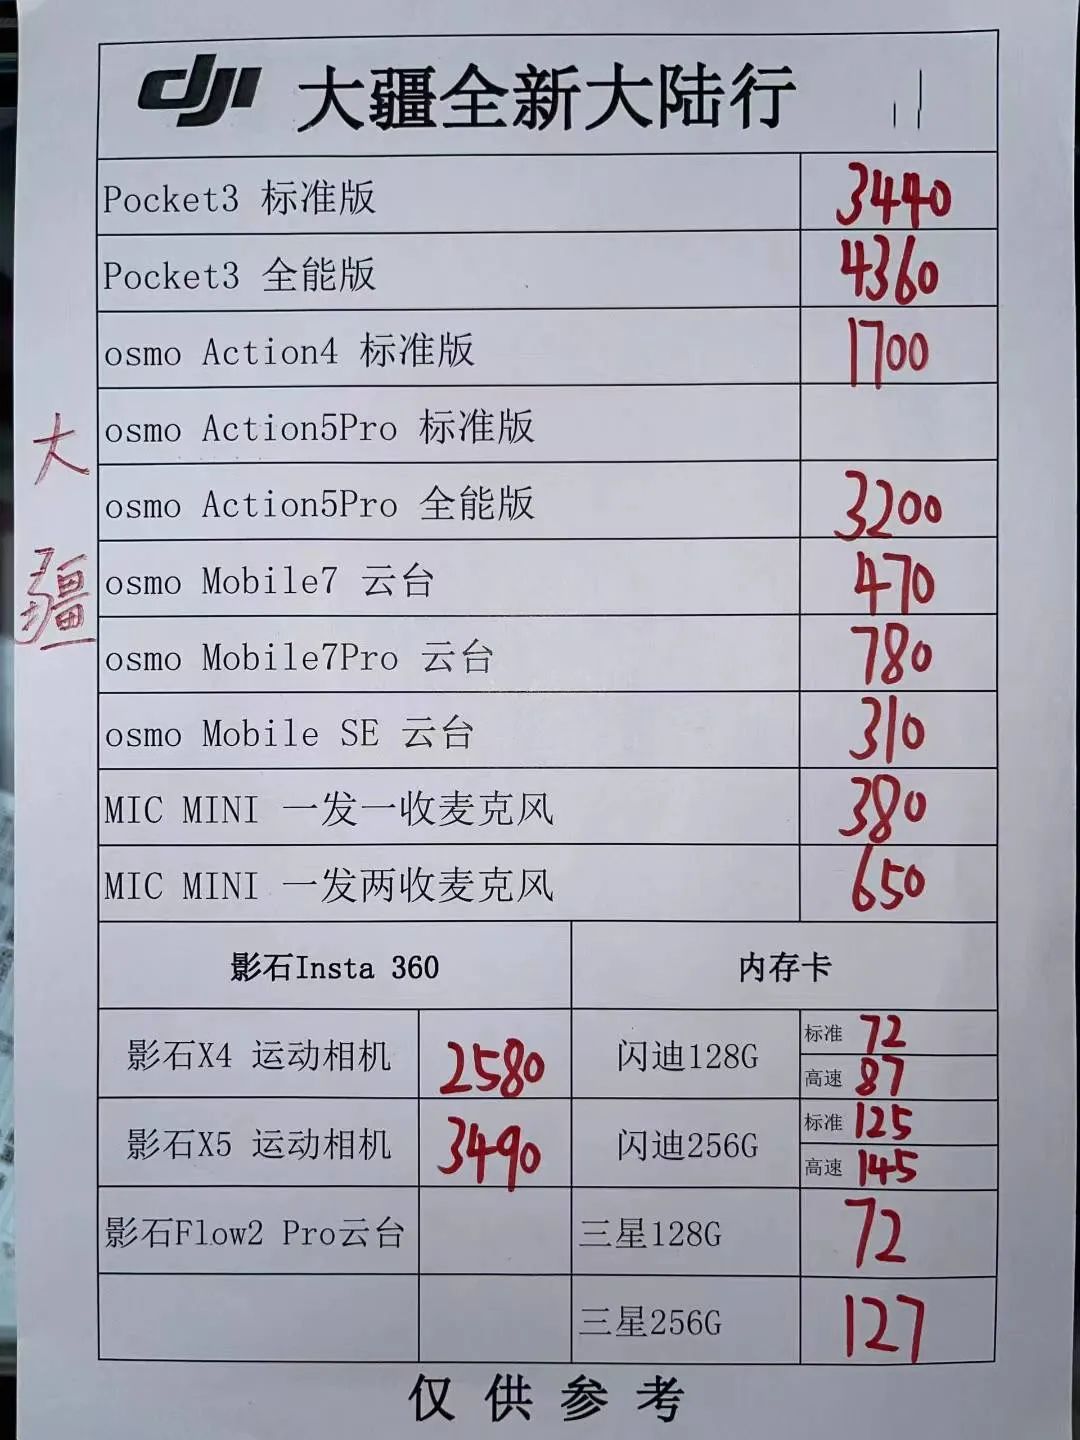 dji 大疆全新大陆行
Pocket3 标准版 3440
Pocket3 全能版 4360
osmo Action4 标准版 1700
osmo Action5Pro 标准版
osmo Action5Pro 全能版 3200
osmo Mobile7 云台 470
osmo Mobile7Pro 云台 780
osmo Mobile SE 云台 310
MIC MINI 一发一收麦克风 380
MIC MINI 一发两收麦克风 650
大疆
影石Insta 360 内存卡
影石X4 运动相机 2580 闪迪128G 标准 72
高速 87
影石X5 运动相机 3490 闪迪256G 标准 125
高速 145
影石Flow2 Pro云台 三星128G 72
三星256G 127
仅供参考